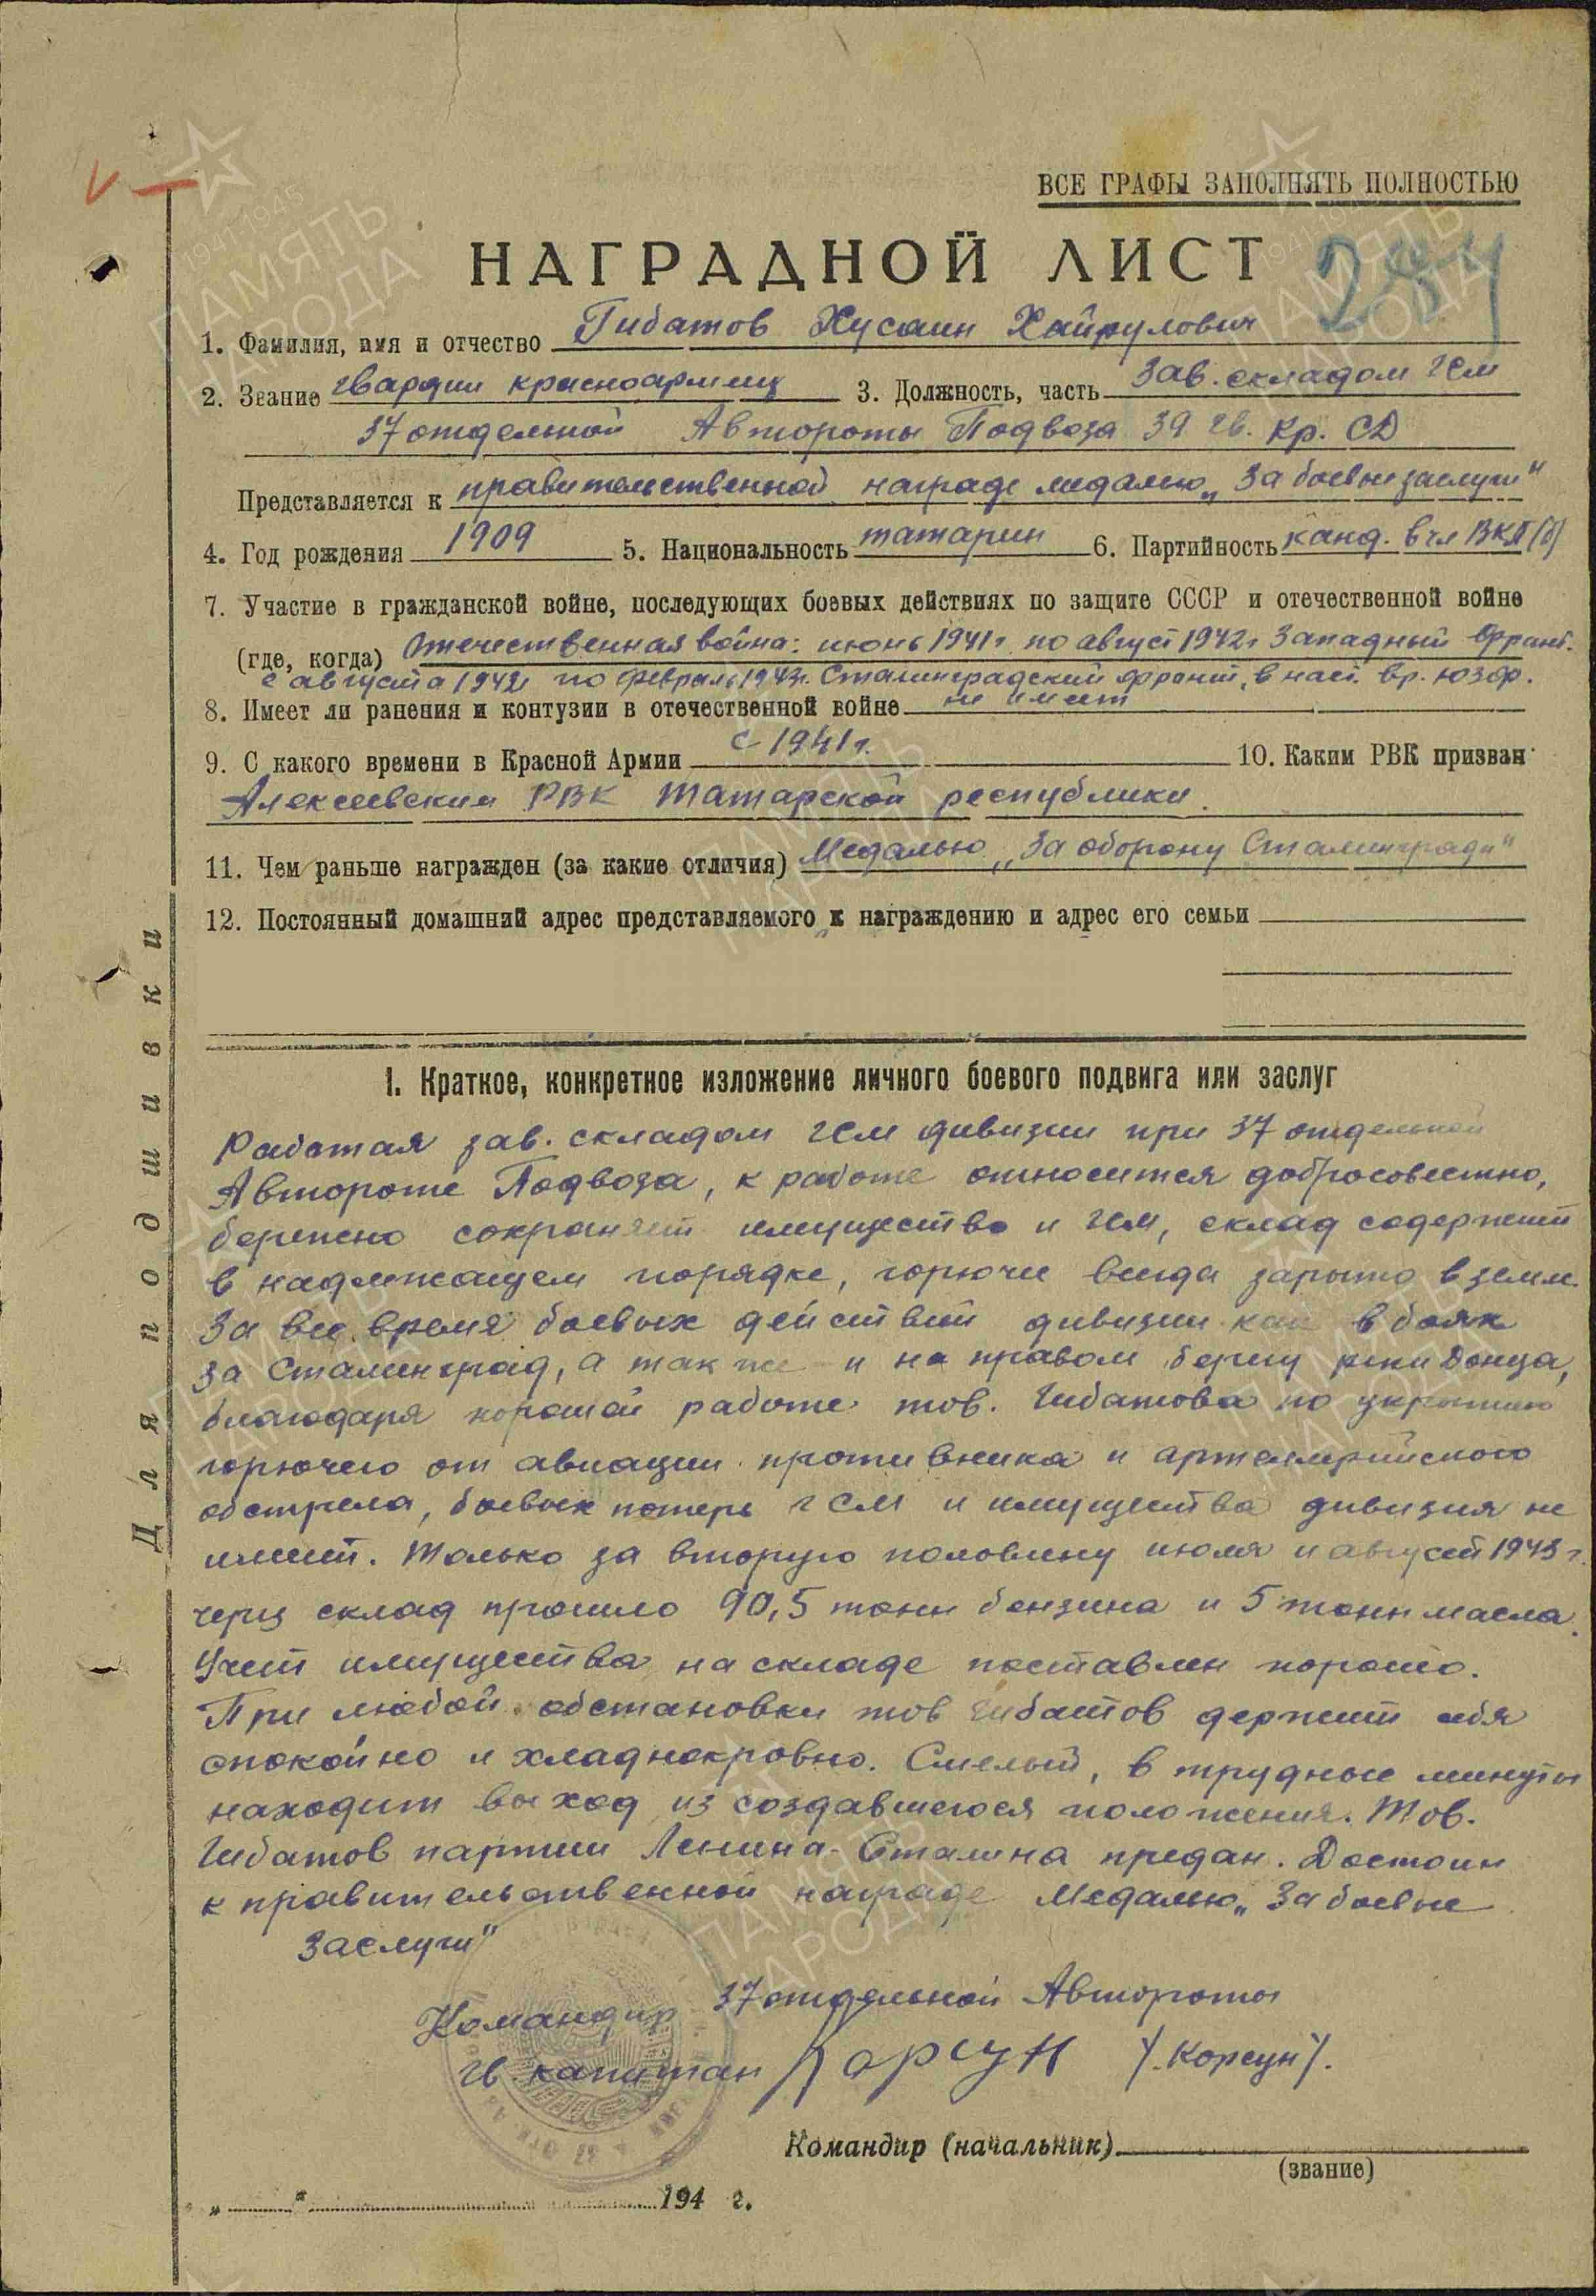 ВСЕ ГРАФЫ ЗАПОЛНЯТЬ ПОЛНОСТЬЮ
НАГРАДНОЙ ЛИСТ
1. Фамилия, имя и отчество Гибатов Хусаин Хайрулович
2. Звание гвардии красноармеец 3. Должность, часть зав. складом гсм
37 отдельной Автороты Подвоза 39 гв. Кр. СД
Представляется к правительственной награде медалью „За боевые заслуги"
4. Год рождения 1909 5. Национальность татарин 6. Партийность канд. в чл ВКП(б)
7. Участие в гражданской войне, последующих боевых действиях по защите СССР и отечественной войне
(где, когда) Отечественная война: июнь 1941 г. по август 1942 г Западный фронт.
с августа 1942 по февраль 1943 г. Сталинградский фронт, в наст. вр. ЮЗФр.
8. Имеет ли ранения и контузии в отечественной войне не имеет
9. С какого времени в Красной Армии с 1941 г. 10. Каким РВК призван
Алексеевским РВК Татарской республики.
11. Чем раньше награжден (за какие отличия) Медалью „За оборону Сталинграда"
12. Постоянный домашний адрес представляемого к награждению и адрес его семьи
Для подшивки
I. Краткое, конкретное изложение личного боевого подвига или заслуг
Работая зав. складом гсм дивизии при 37 отдельной
Автороте Подвоза, к работе относится добросовестно,
бережно сохраняет имущество и гсм, склад содержит
в надлежащем порядке, горючее всегда зарыто в земле.
За все время боевых действий дивизии как в боях
за Сталинград, а так же и на правом берегу реки Донца,
благодаря хорошей работе тов. Гибатова по укрытию
горючего от авиации противника и артиллерийского
обстрела, боевых потерь гсм и имущества дивизия не
имеет. Только за вторую половину июля и август 1943 г.
через склад прошло 90,5 тонн бензина и 5 тонн масла.
Учет имущества на складе поставлен хорошо.
При любой обстановки тов Гибатов держит себя
спокойно и хладнокровно. Смелый, в трудные минуты
находит выход из создавшегося положения. Тов.
Гибатов партии Ленина-Сталина предан. Достоин
к правительственной награде Медалью „За боевые
заслуги"
Командир 37 отдельной Автороты
гв. капитан Корсун /. Корсун /.
Командир (начальник)
(звание)
„ " 194 г.
ПАМЯТЬ НАРОДА
1941-1945